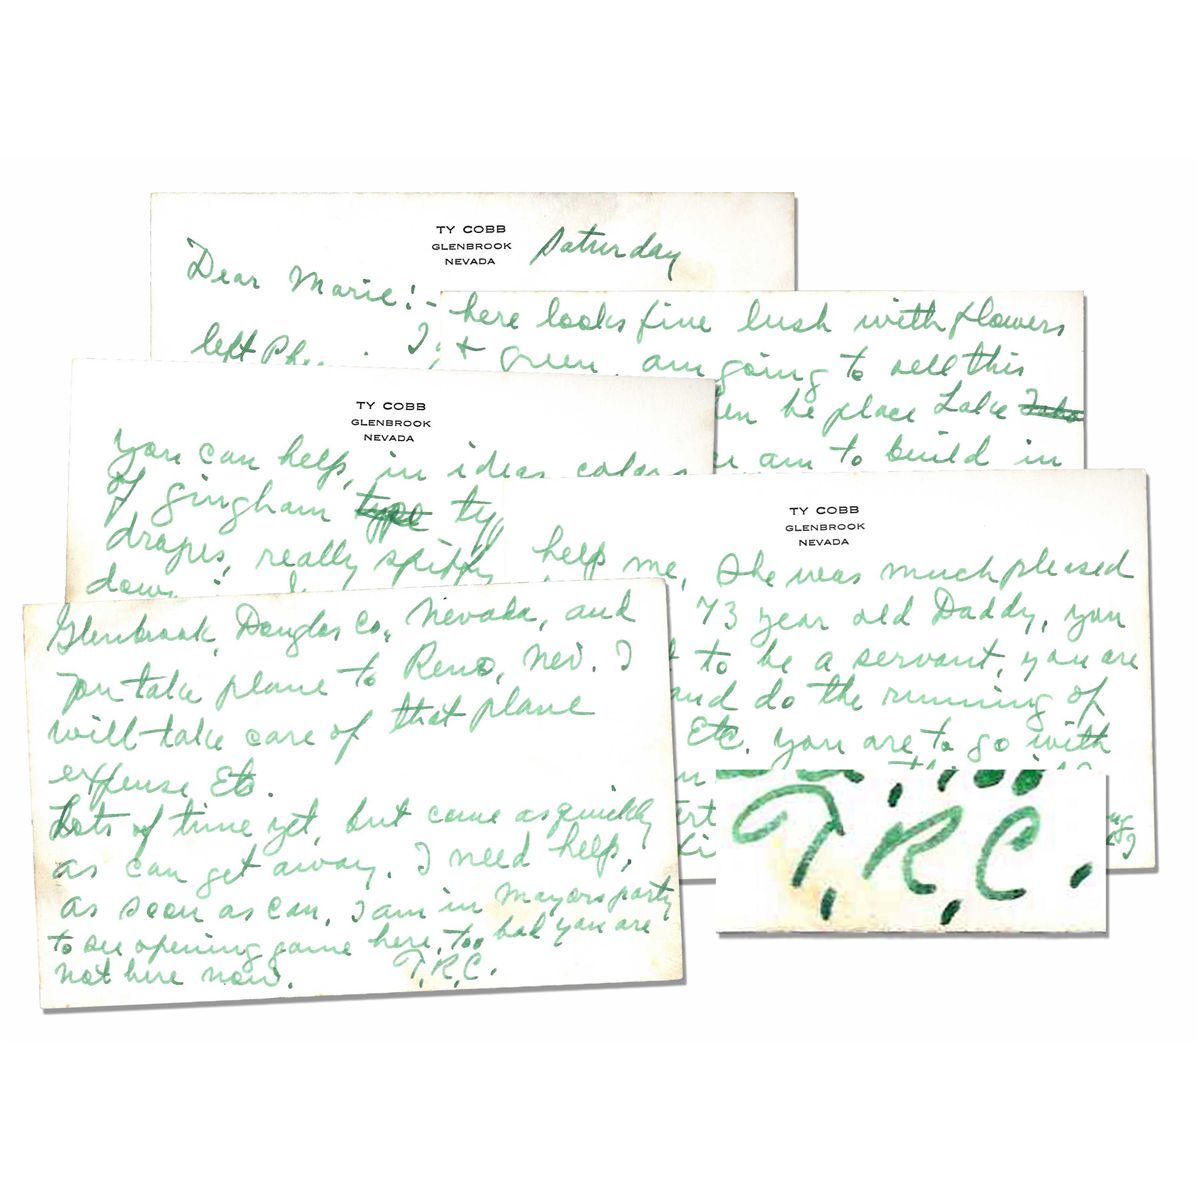 TY COBB
GLENBROOK
NEVADA
Saturday
Dear Marie:-
left
here looks fine lush with flowers
+ green. am going to sell this
be place Lake
am to build in
TY COBB
GLENBROOK
NEVADA
you can help, in ideas colors
of gingham
drapes, really spiffy
down
TY COBB
GLENBROOK
NEVADA
help me, She was much pleased
73 year old Daddy, you
to be a servant, you are
and do the running of
Etc. you are to go with
Glenbrook, Douglas Co., Nevada, and
you take plane to Reno, Nev. I
will take care of that plane
expense Etc.
Lots of time yet, but come as quickly
as can get away. I need help,
as soon as can, I am in Mayors party
to see opening game here, too bad you are
not here now. T.R.C.
T.R.C.